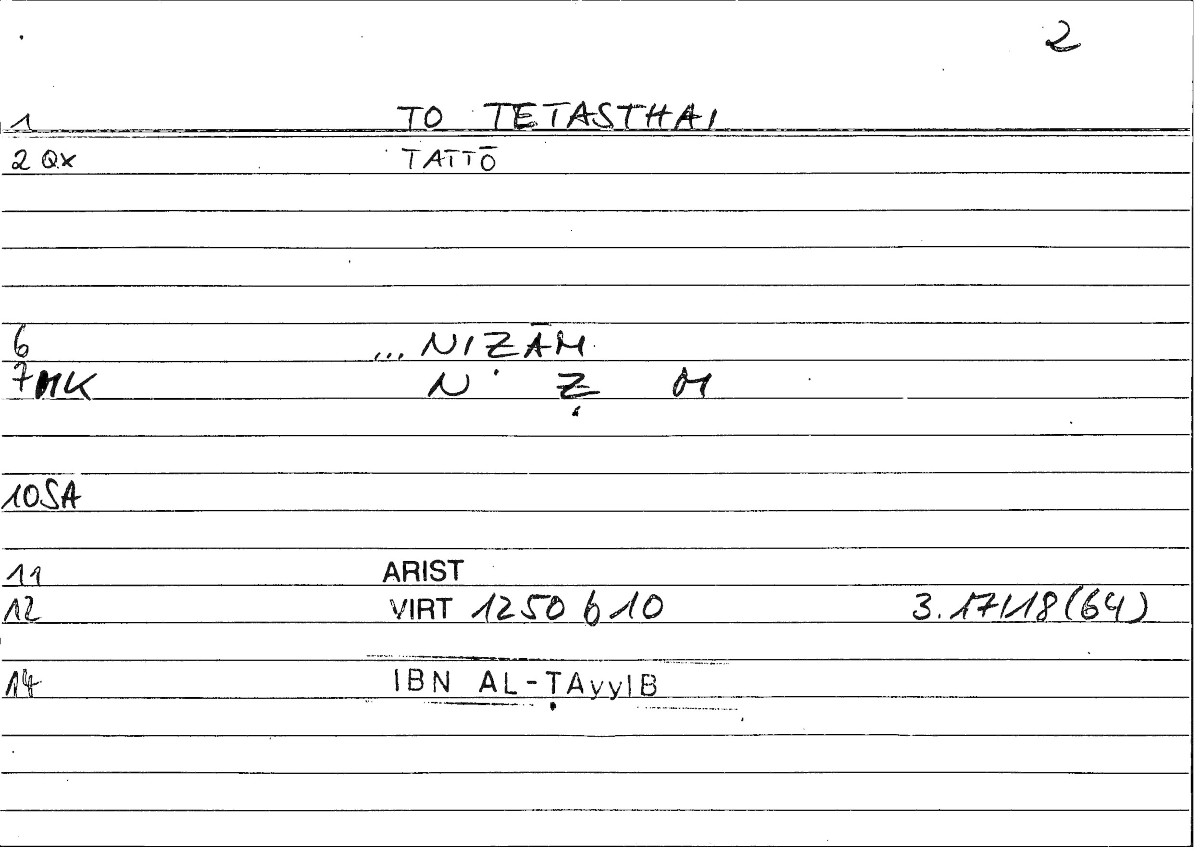 2
1 TO TETASTHAI
2 QX TATTŌ
6 ... NIẒĀM
7 MK N Ẓ M
10 SA
11 ARIST
12 VIRT 1250 b 10 3.17/18 (64)
14 IBN AL-ṬAyyIB